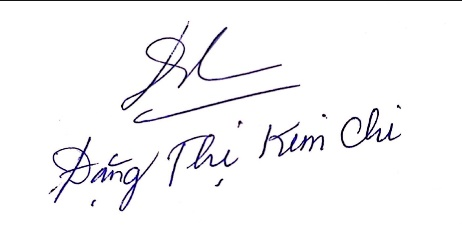 Đặng Thị Kim Chi